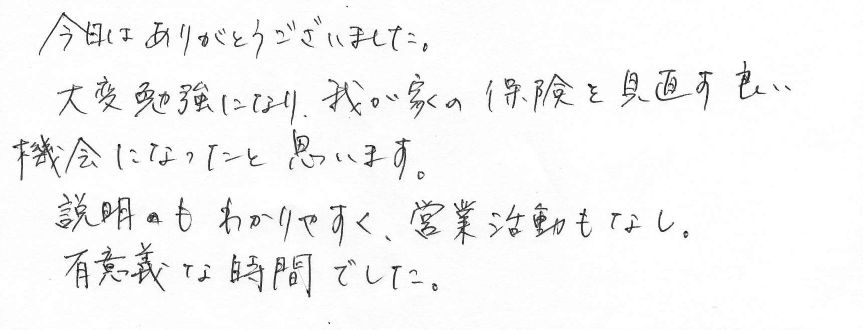 今日はありがとうございました。
大変勉強になり、我が家の保険を見直す良い
機会になったと思います。
説明もわかりやすく、営業活動もなし。
有意義な時間でした。